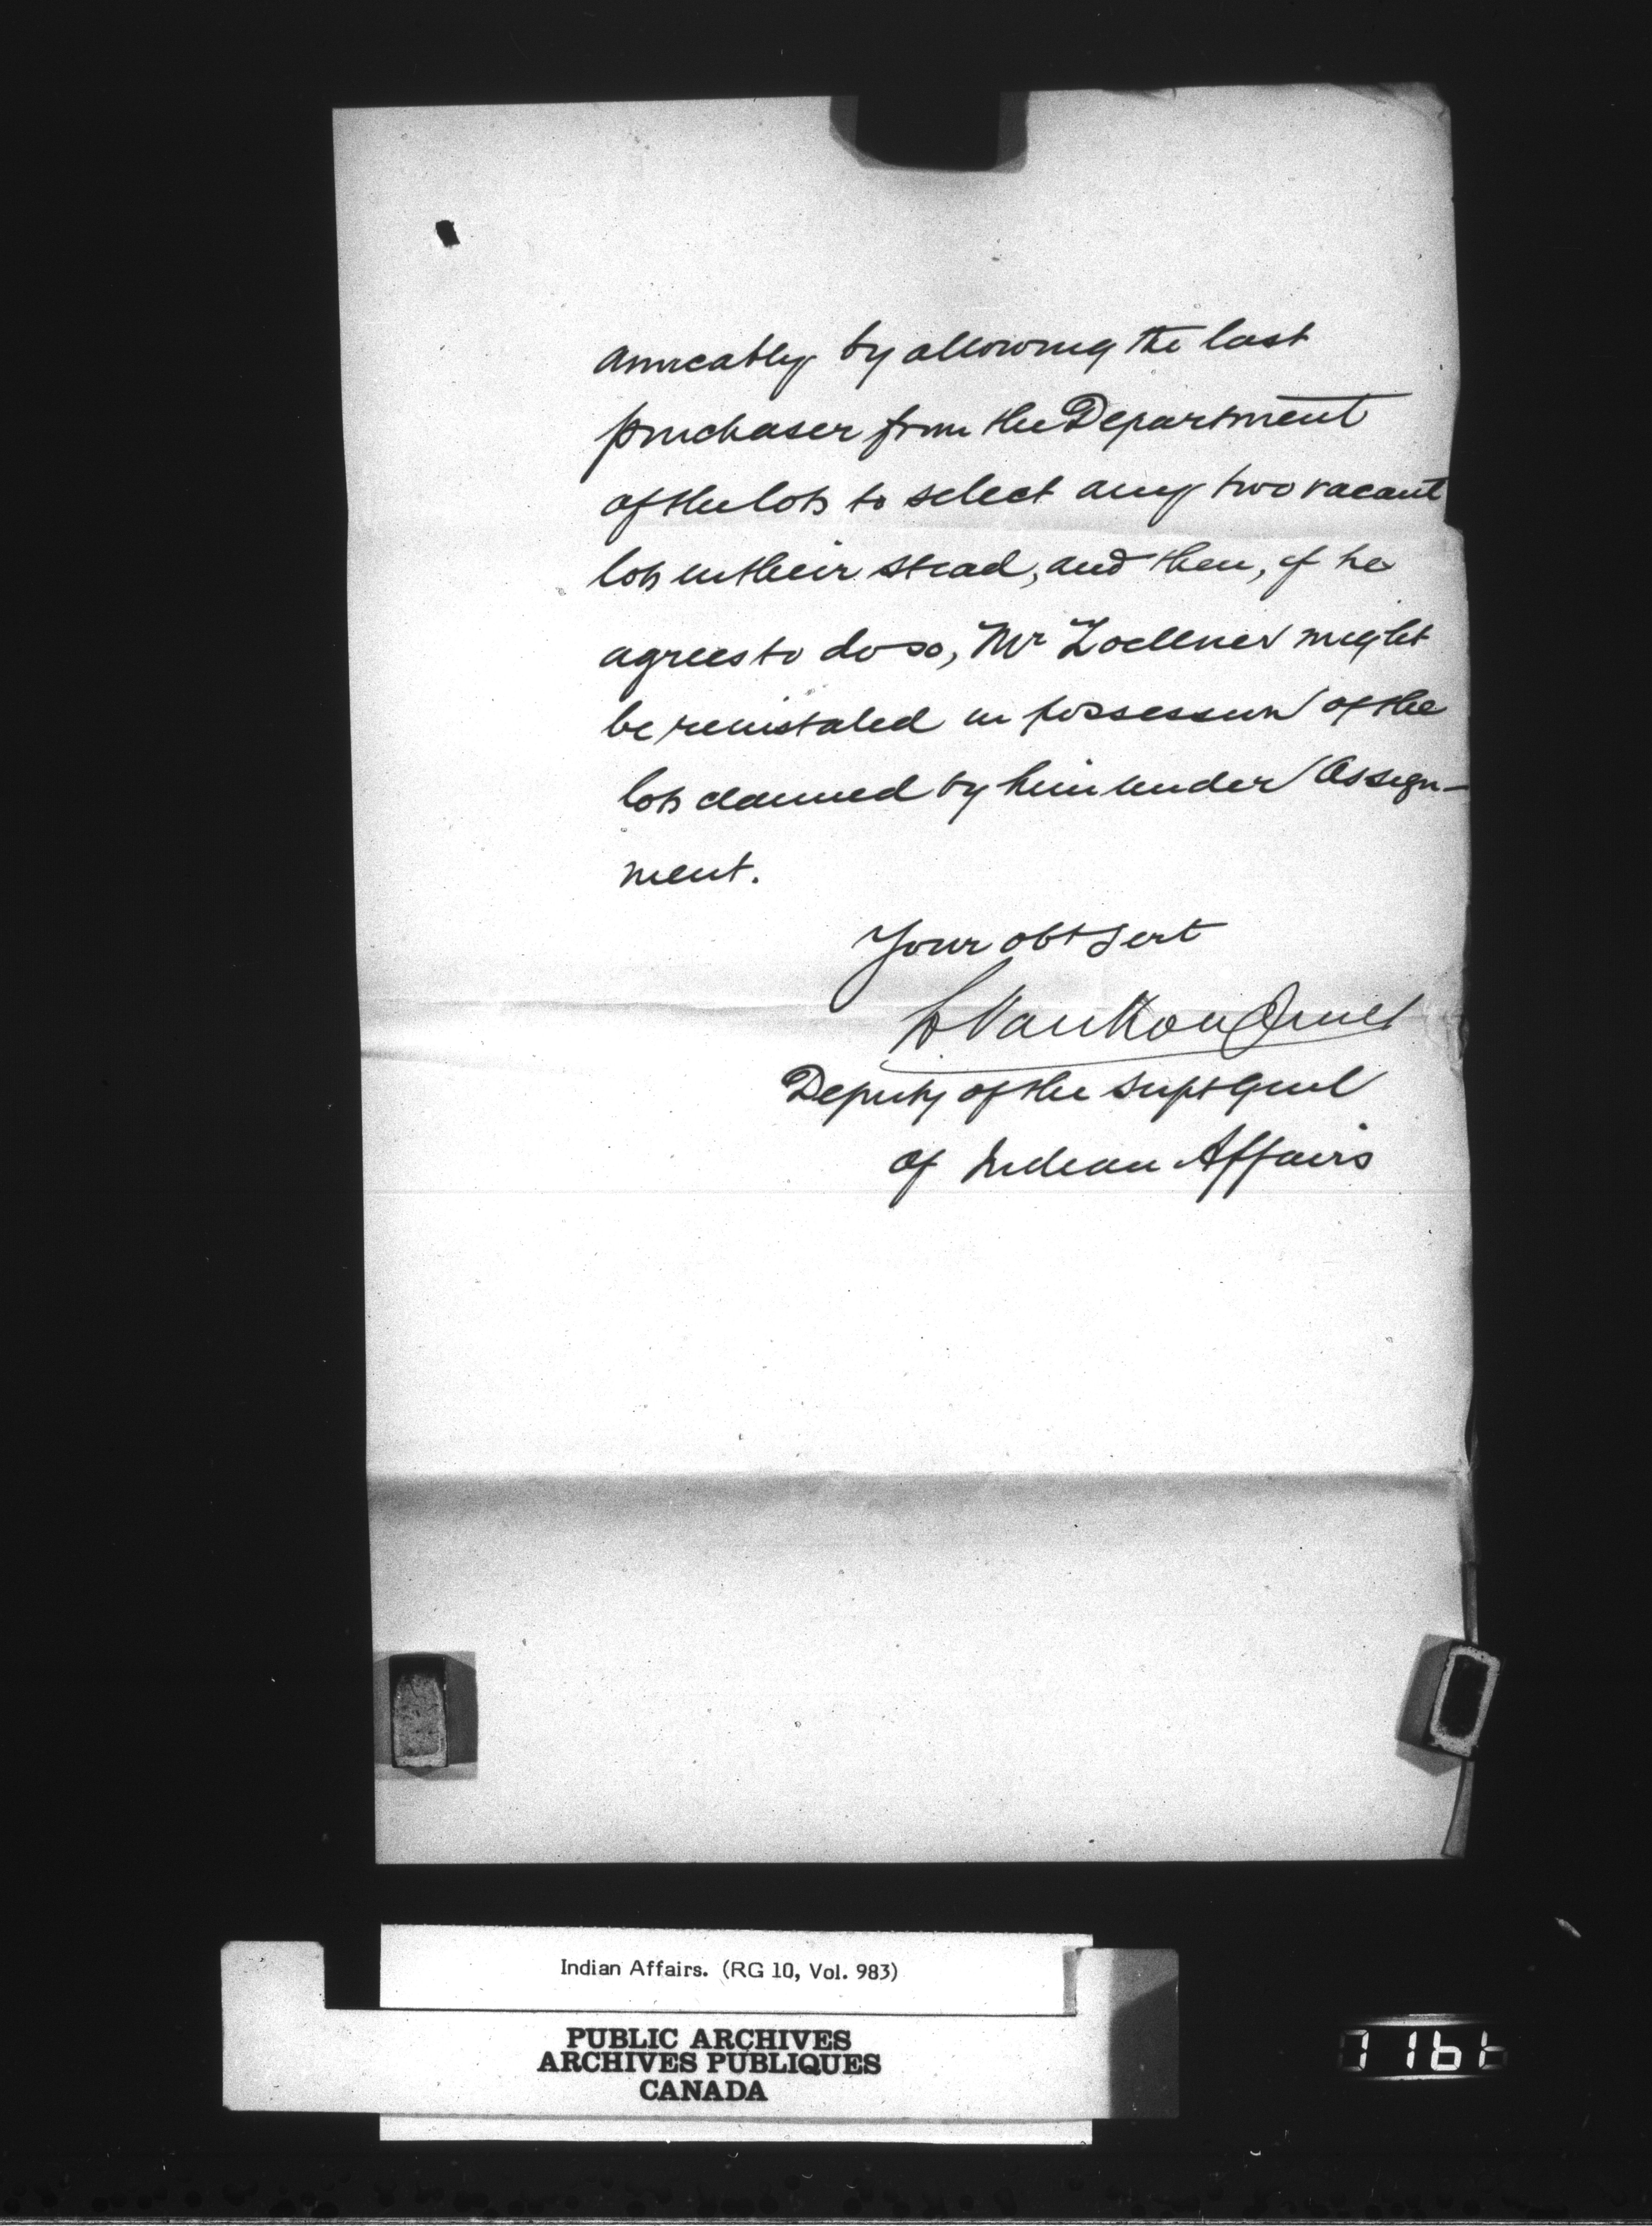 amicably by allowing the last
purchaser from the Department
of the lots to select any two vacant
lots in their stead, and then, if he
agrees to do so, Mr Zoellner might
be reinstated in possession of the
lots claimed by him under Assign-
ment.
Your obt Servt
L VanKoughnet
Deputy of the Supt Genl
of Indian Affairs
Indian Affairs. (RG 10, Vol. 983)
PUBLIC ARCHIVES
ARCHIVES PUBLIQUES
CANADA